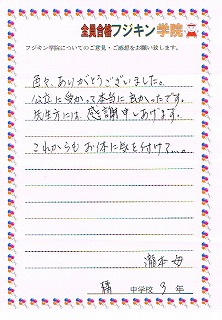 全員合格フジキン学院
フジキン学院についてのご意見・ご感想をお願い致します。
色々、ありがとうございました。
公立に受かって本当に良かったです。
先生方には、感謝申しあげます。
これからもお体に気を付けて…。
瀧本 母
中学校 3 年